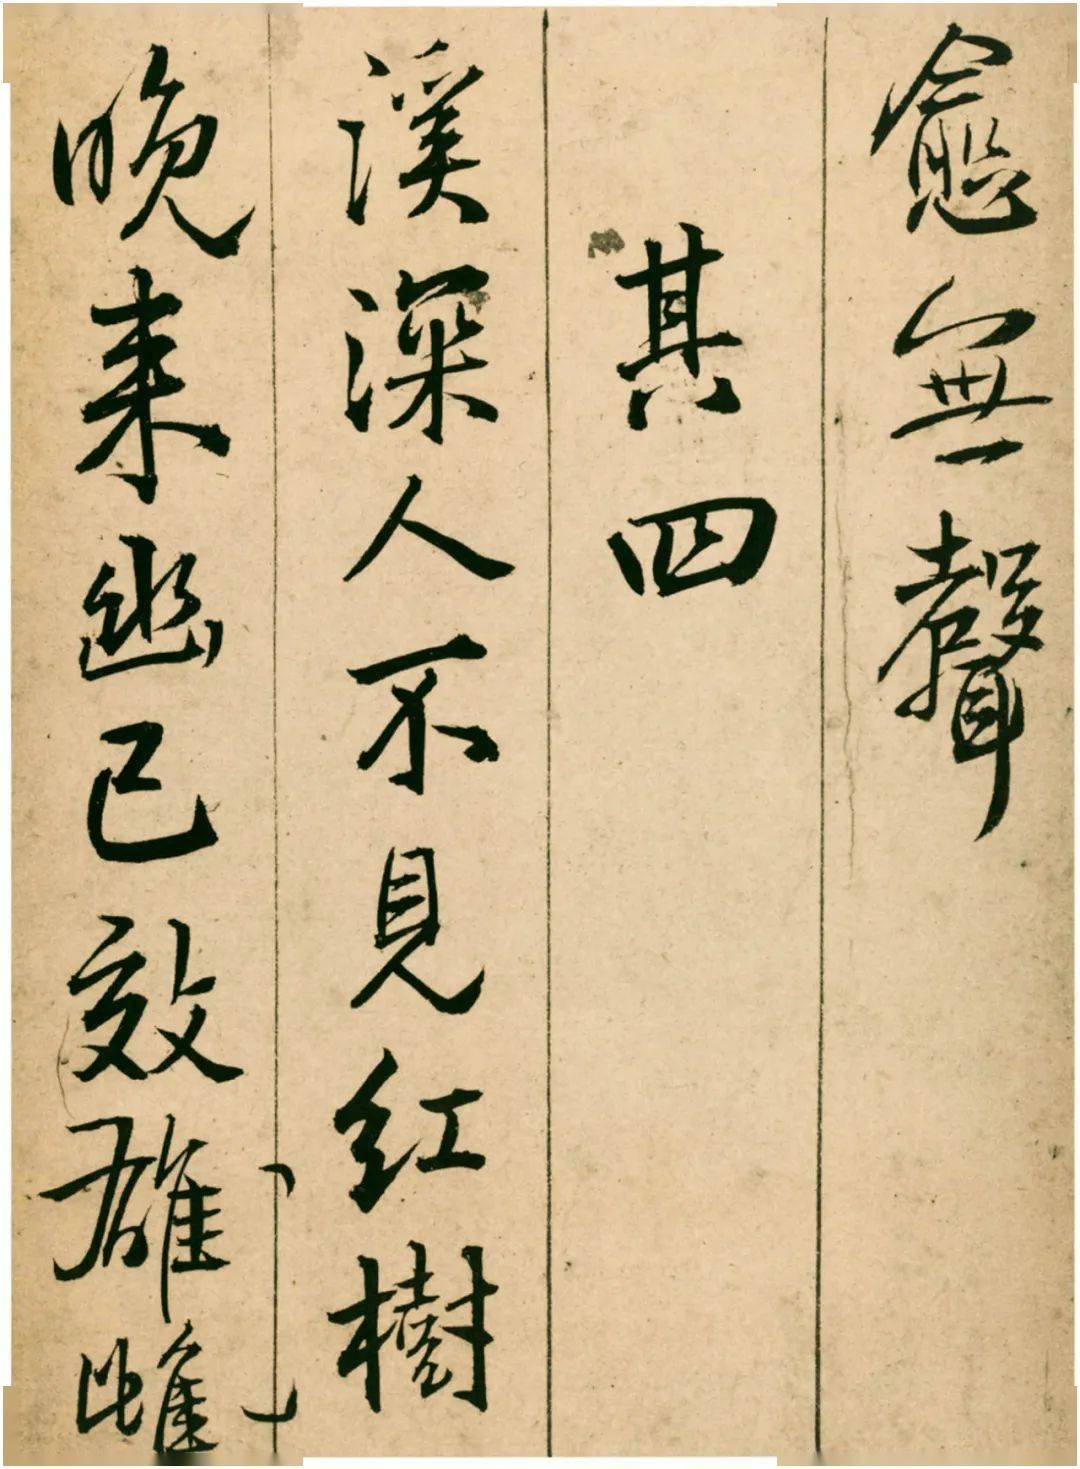 愈無聲
其四
溪深人不見紅樹
晚來幽已效雄雌